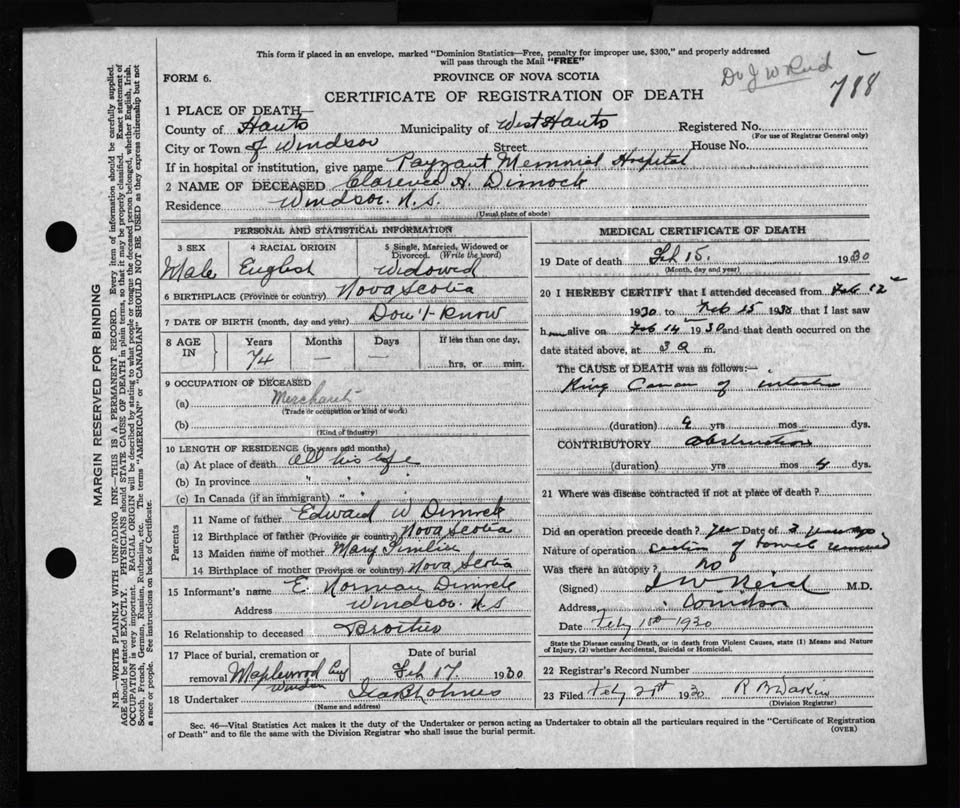 This form if placed in an envelope, marked "Dominion Statistics—Free, penalty for improper use, $300," and properly addressed
will pass through the Mail "FREE"
FORM 6.
PROVINCE OF NOVA SCOTIA
Dr J W Reid
CERTIFICATE OF REGISTRATION OF DEATH
1 PLACE OF DEATH—
County of Hants Municipality of West Hants Registered No.
(For use of Registrar General only)
City or Town of Windsor Street House No.
If in hospital or institution, give name Payzant Memorial Hospital
2 NAME OF DECEASED Clarence H. Dimock
Residence Windsor. N.S.
(Usual place of abode)
PERSONAL AND STATISTICAL INFORMATION
3 SEX 4 RACIAL ORIGIN 5 Single, Married, Widowed or
Divorced. (Write the word)
Male English Widowed
6 BIRTHPLACE (Province or country) Nova Scotia
7 DATE OF BIRTH (month, day and year) Don't Know
8 AGE IN Years Months Days If less than one day,
74 — — hrs. or min.
9 OCCUPATION OF DECEASED
(a) Merchant
(Trade or occupation or kind of work)
(b)
(Kind of industry)
10 LENGTH OF RESIDENCE (in years and months)
(a) At place of death All his life
(b) In province " " "
(c) In Canada (if an immigrant) " " "
Parents
11 Name of father Edward W Dimock
12 Birthplace of father (Province or country) Nova Scotia
13 Maiden name of mother Mary
14 Birthplace of mother (Province or country) Nova Scotia
15 Informant's name E Norman Dimock
Address Windsor. N.S
16 Relationship to deceased Brother
17 Place of burial, cremation or Date of burial
removal Maplewood Feb 17. 1930
Windsor
18 Undertaker
(Name and address)
MEDICAL CERTIFICATE OF DEATH
19 Date of death Feb 15. 1930
(Month, day and year)
20 I HEREBY CERTIFY that I attended deceased from Feb 12
1930 to Feb 15 1930 that I last saw
h alive on Feb 14 1930 and that death occurred on
date stated above, at 3 a m.
The CAUSE of DEATH was as follows:—
of
(duration) yrs mos dys.
CONTRIBUTORY obstruction
(duration) yrs mos 4 dys.
21 Where was disease contracted if not at place of death?
Did an operation precede death? Yes Date of 3 years ago
Nature of operation section of bowel removed
Was there an autopsy? No
(Signed) J W Reid M.D.
Address, Windsor
Date Feby 1930
State the Disease causing Death, or in death from Violent Causes, state (1) Means and Nature
of Injury, (2) whether Accidental, Suicidal or Homicidal.
22 Registrar's Record Number
23 Filed Feby 1930
(Division Registrar)
Sec. 46—Vital Statistics Act makes it the duty of the Undertaker or person acting as Undertaker to obtain all the particulars required in the "Certificate of Registration
of Death" and to file the same with the Division Registrar who shall issue the burial permit.
(OVER)
MARGIN RESERVED FOR BINDING
N.B.—WRITE PLAINLY WITH UNFADING INK—THIS IS A PERMANENT RECORD. Every item of information should be carefully supplied.
AGE should be stated EXACTLY. PHYSICIANS should STATE CAUSE OF DEATH in plain terms, so that it may be properly classified. Exact statement of
OCCUPATION is very important. RACIAL ORIGIN will be described by stating to what people or tongue the deceased person belonged, whether English, Irish,
Scotch, French, German, Russian, Ruthenian, etc. The terms "AMERICAN" or "CANADIAN" SHOULD NOT BE USED as they express citizenship but not
a race or people. See instructions on back of Certificate.